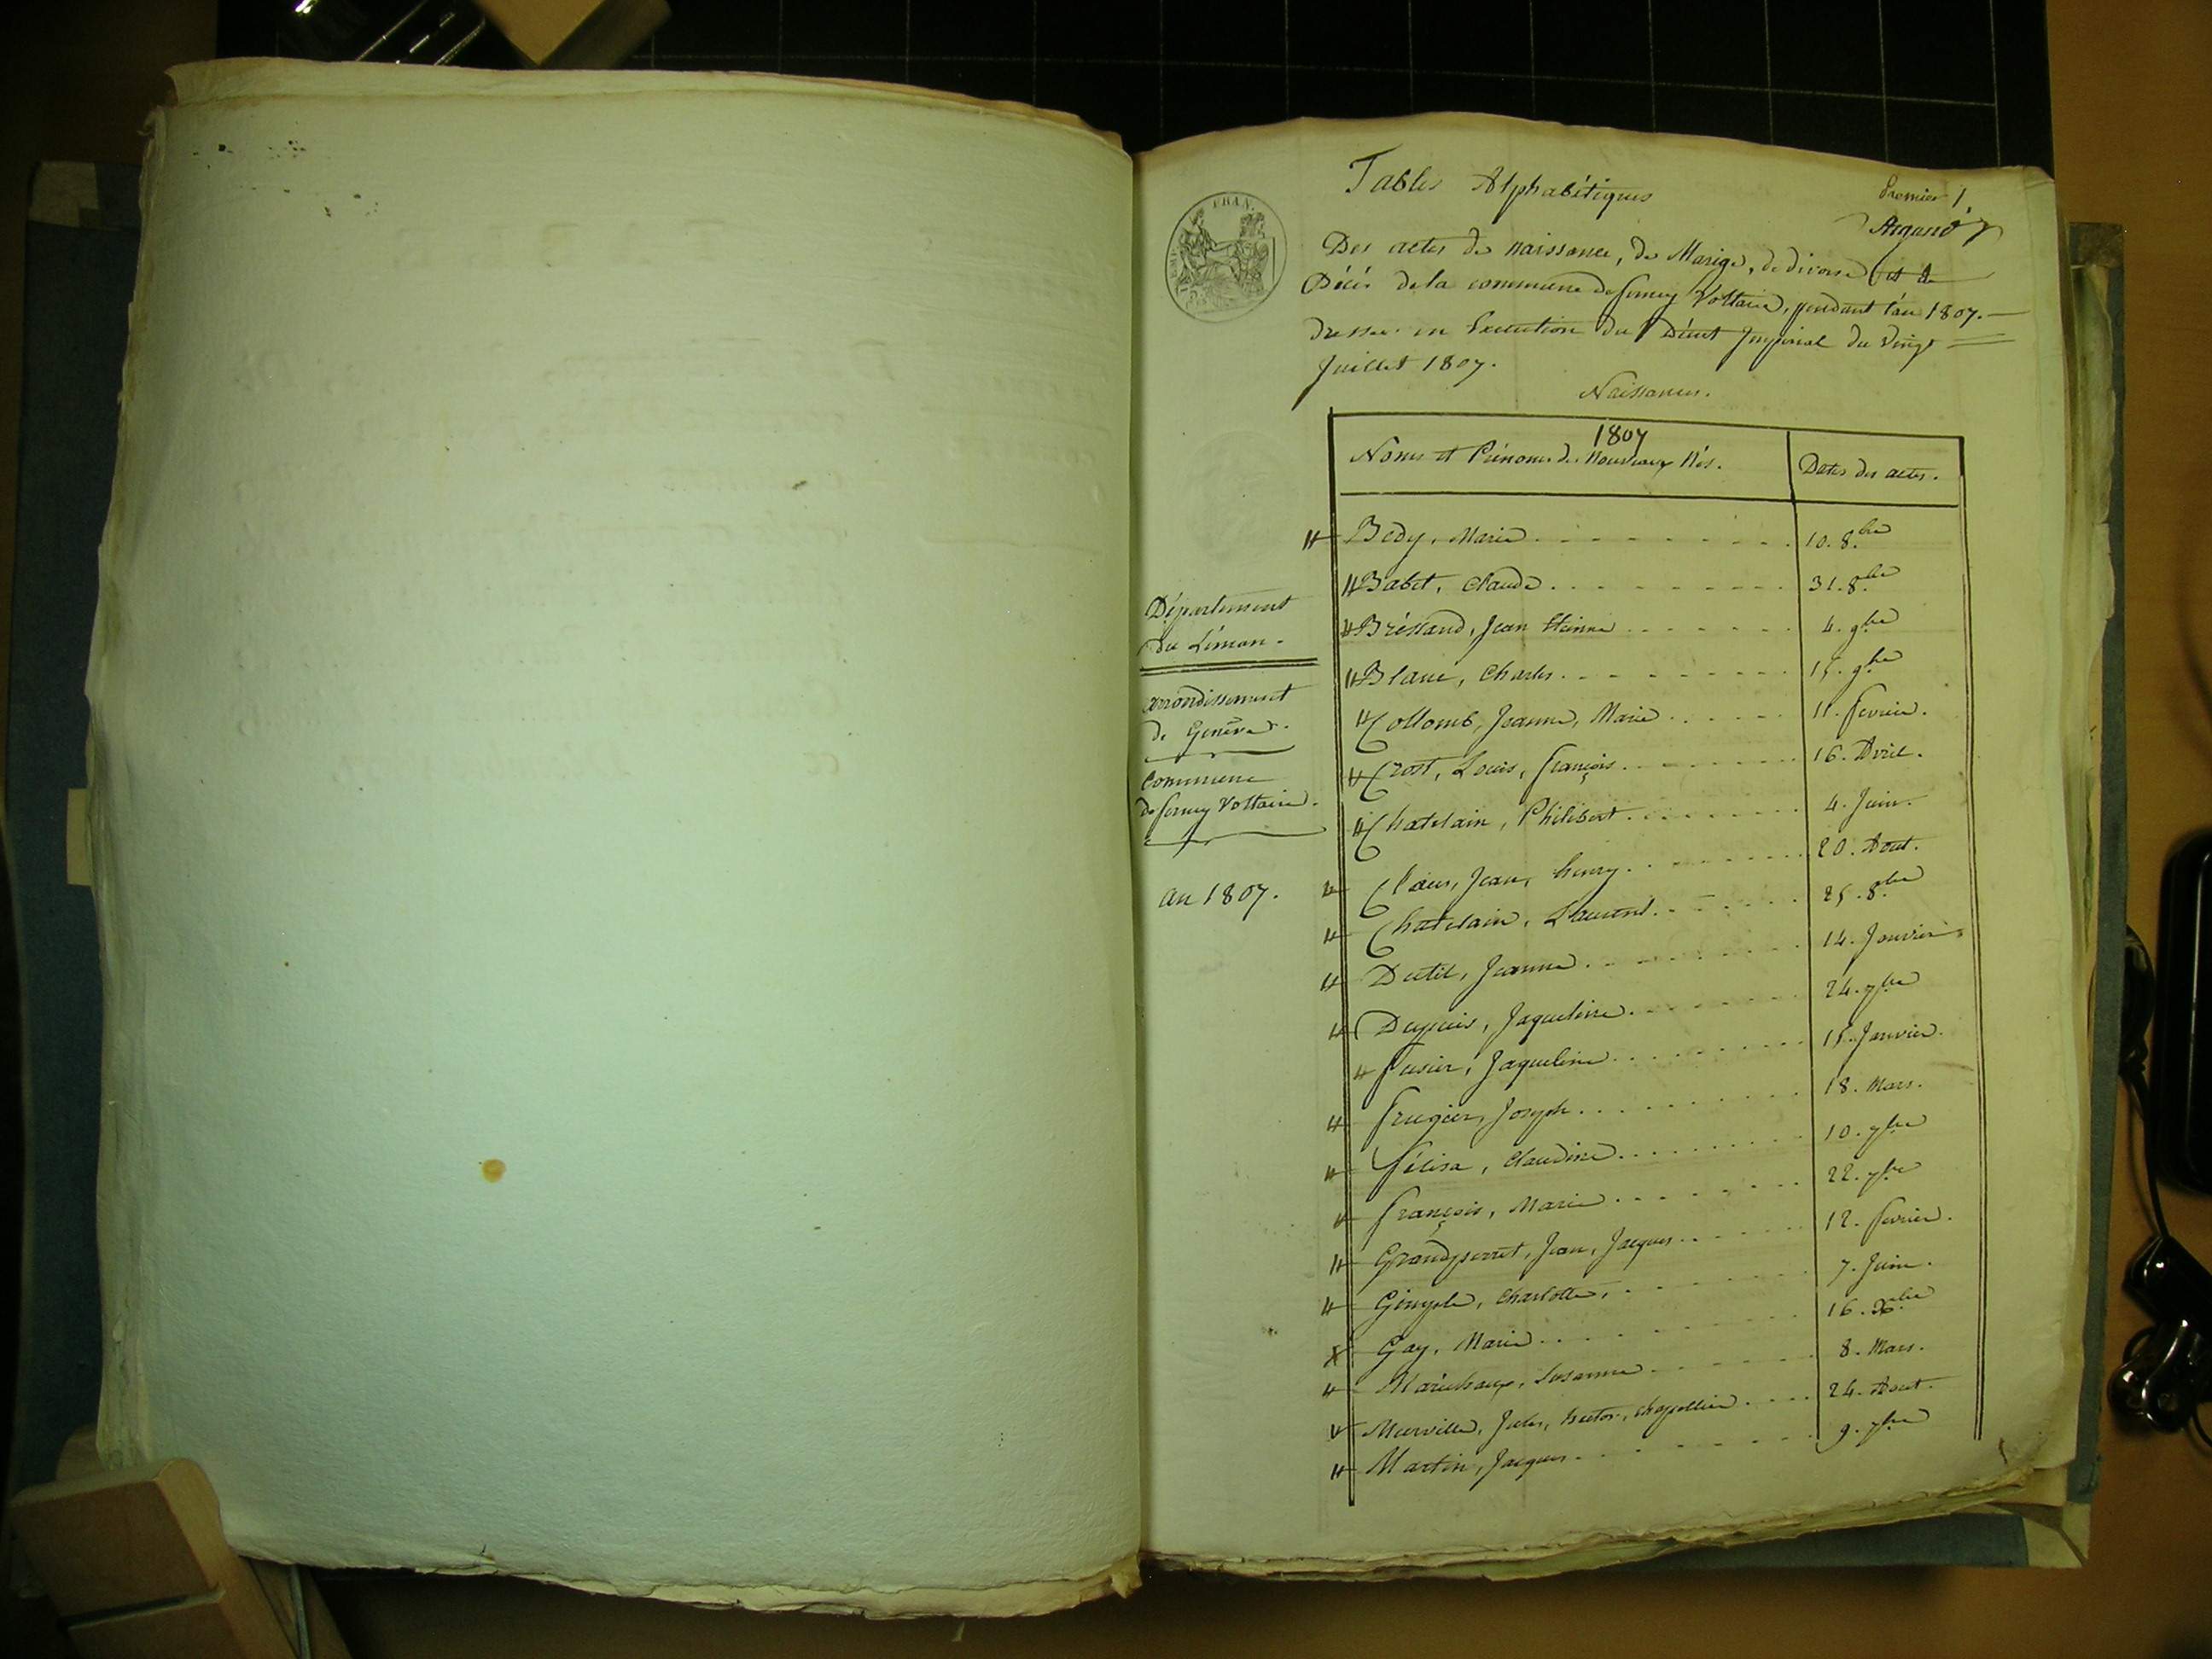 Tables Alphabétiques
Premier 1
Argand
Des actes de naissance, de Marige, de divorse et de
Décés de la commune de ferney Voltaire, pendant l'an 1807.
dressée en Execution du Décret Imperial du vingt
Juillet 1807.
Naissances.
EMP. FRAN.
1807
Noms et Prénoms des Nouveaux Nés.
Dates des actes.
Département
du Léman.
arrondissement
de Genève.
Commune
de ferney Voltaire.
an 1807.
Bedy, Marie 10. 8.bre
Babet, Claude 31. 8.bre
Bressand, Jean Etienne 4. 9bre
Blanc, Charles 15. 9bre
Collomb, Jeanne, Marie 11. fevrier.
Crost, Louis, françois 16. Avril.
Chatelain, Philibert 4. Juin.
Jean, henry 20. Aout.
Chatelain, Laurent 25. 8.bre
Dutil, Jeanne 14. Janvier
Dupuis, Jaqueline 24. 7bre
fusier, Jaqueline 15. Janvier.
frugier, Joseph 18. Mars.
félisa, Claudine 10. 7bre
françois, Marie 22. 7bre
Grandperret, Jean, Jacques 12. fevrier.
Gimple, Charlotte, 7. Juin.
Gay, Marie 16. Xbre
Maréchaux, Susanne 8. Mars.
Merville, Jules, hector, 24. Aout.
Martin, Jacques 9. 7bre